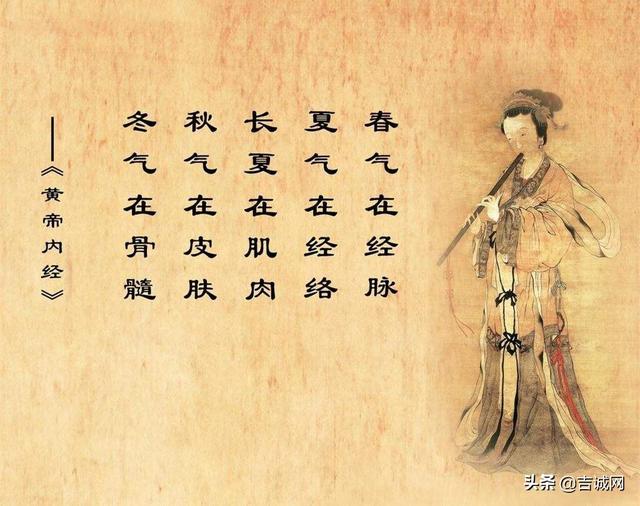 春气在经脉
夏气在经络
长夏在肌肉
秋气在皮肤
冬气在骨髓
——《黄帝内经》
头条 @吉城网